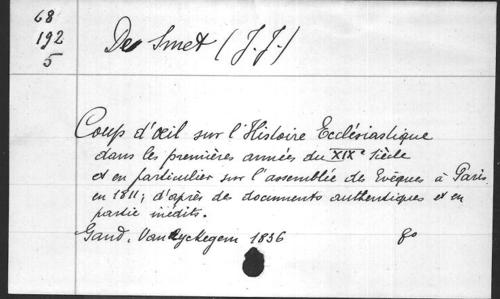 68
192
5
De Smet (J.J.)
Coup d'œil sur l'Histoire Ecclésiastique
dans les premières années du XIXe siècle
et en particulier sur l'assemblée des Evêques à Paris
en 1811; d'après des documents authentiques et en
partie inédits.
Gand. Vanryckegem 1836 8o